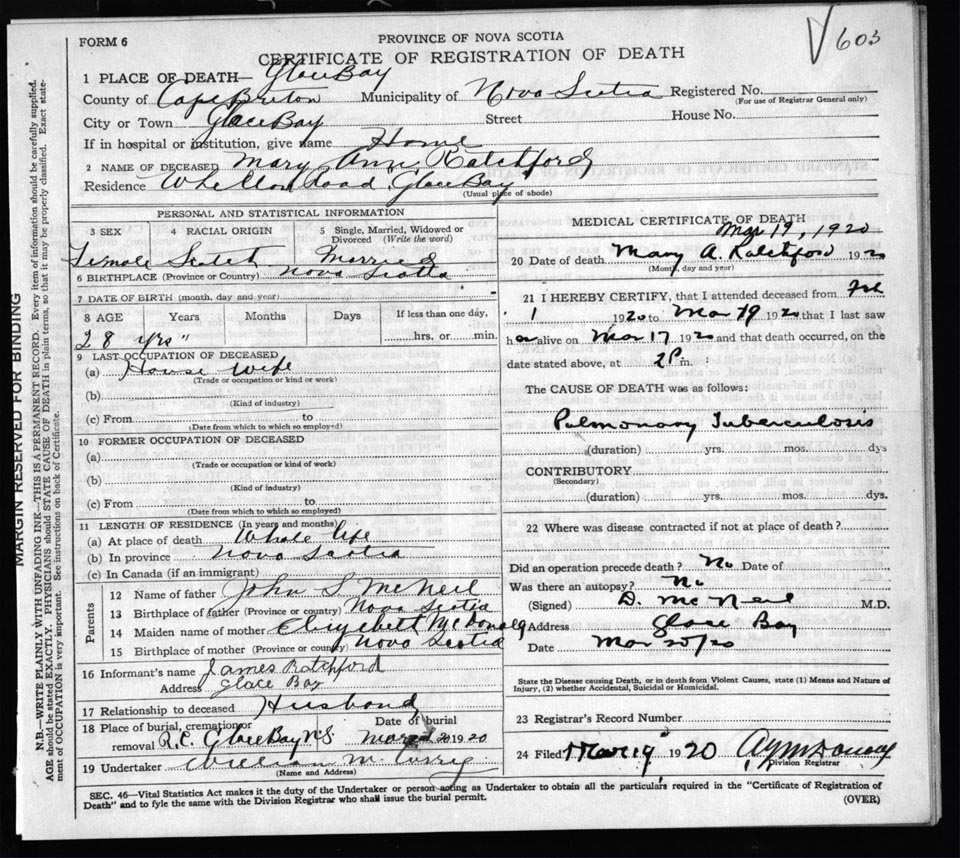 603
FORM 6
PROVINCE OF NOVA SCOTIA
CERTIFICATE OF REGISTRATION OF DEATH
1 PLACE OF DEATH— Glace Bay
County of Cape Breton Municipality of Nova Scotia Registered No.
(For use of Registrar General only)
City or Town Glace Bay Street House No.
If in hospital or institution, give name Home
2 NAME OF DECEASED Mary Ann Ratchford
Residence Road, Glace Bay
(Usual place of abode)
PERSONAL AND STATISTICAL INFORMATION
3 SEX 4 RACIAL ORIGIN 5 Single, Married, Widowed or Divorced (Write the word)
Female Scotch Married
6 BIRTHPLACE (Province or Country) Nova Scotia
7 DATE OF BIRTH (month, day and year)
8 AGE Years Months Days If less than one day,
hrs. or min.
28 yrs "
9 LAST OCCUPATION OF DECEASED
(a) House Wife
(Trade or occupation or kind or work)
(b)
(Kind of industry)
(c) From to
(Date from which to which so employed)
10 FORMER OCCUPATION OF DECEASED
(a)
(Trade or occupation or kind of work)
(b)
(Kind of industry)
(c) From to
(Date from which to which so employed)
11 LENGTH OF RESIDENCE (In years and months)
(a) At place of death Whole life
(b) In province Nova Scotia
(c) In Canada (if an immigrant)
Parents
12 Name of father John S McNeil
13 Birthplace of father (Province or country) Nova Scotia
14 Maiden name of mother McDonald
15 Birthplace of mother (Province or country) Nova Scotia
16 Informant's name James Ratchford
Address Glace Bay
17 Relationship to deceased Husband
18 Place of burial, cremation or removal R.C. Glace Bay NS Date of burial March 20 1920
19 Undertaker William
(Name and Address)
MEDICAL CERTIFICATE OF DEATH
Mar 19, 1920
20 Date of death Mary A. Ratchford 1920
(Month, day and year)
21 I HEREBY CERTIFY, that I attended deceased from Feb
1 1920 to Mar 19 1920 that I last saw
her alive on Mar 17 1920 and that death occurred, on the
date stated above, at 2 P.m.
The CAUSE OF DEATH was as follows:
Pulmonary Tuberculosis
(duration) yrs. mos. dys
CONTRIBUTORY
(Secondary)
(duration) yrs. mos. dys.
22 Where was disease contracted if not at place of death?
Did an operation precede death? No Date of
Was there an autopsy? No
(Signed) D. McNeil M.D.
Address Glace Bay
Date Mar 20/20
State the Disease causing Death, or in death from Violent Causes, state (1) Means and Nature of
Injury, (2) whether Accidental, Suicidal or Homicidal.
23 Registrar's Record Number
24 Filed Mar 19 1920
Division Registrar
SEC. 46—Vital Statistics Act makes it the duty of the Undertaker or person acting as Undertaker to obtain all the particulars required in the "Certificate of Registration of
Death" and to fyle the same with the Division Registrar who shall issue the burial permit.
(OVER)
MARGIN RESERVED FOR BINDING
N.B.—WRITE PLAINLY WITH UNFADING INK—THIS IS A PERMANENT RECORD. Every item of information should be carefully supplied.
AGE should be stated EXACTLY. PHYSICIANS should STATE CAUSE OF DEATH in plain terms, so that it may be properly classified. Exact state-
ment of OCCUPATION is very important. See instructions on back of Certificate.